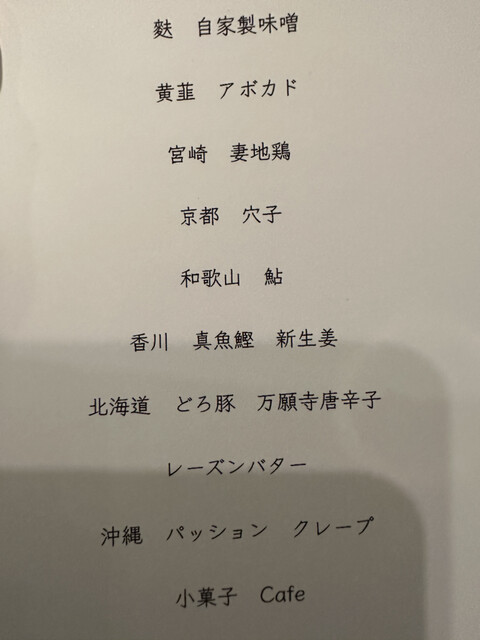 麩 自家製味噌
黄韮 アボカド
宮崎 妻地鶏
京都 穴子
和歌山 鮎
香川 真魚鰹 新生姜
北海道 どろ豚 万願寺唐辛子
レーズンバター
沖縄 パッション クレープ
小菓子 Cafe